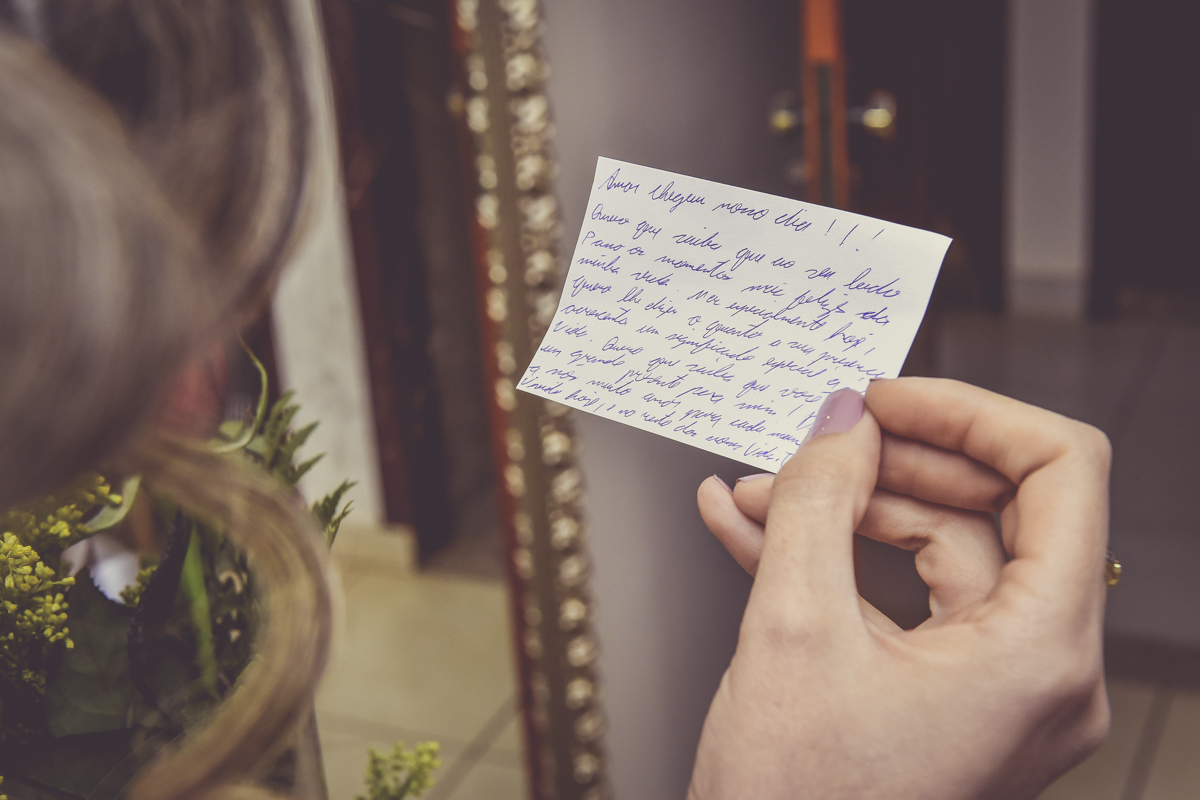 Amor chegou nosso dia!!!
Quero que saiba que ao seu lado
Passo os momentos mais felizes da
minha vida. Mas especialmente hoje,
quero lhe dizer o quanto a sua presença
acrescenta um significado especial a
Vida. Quero que saiba que você
um grande presente para mim!
a nós muitos anos para cada
vivido hoje, e no resto das nossas Vidas.